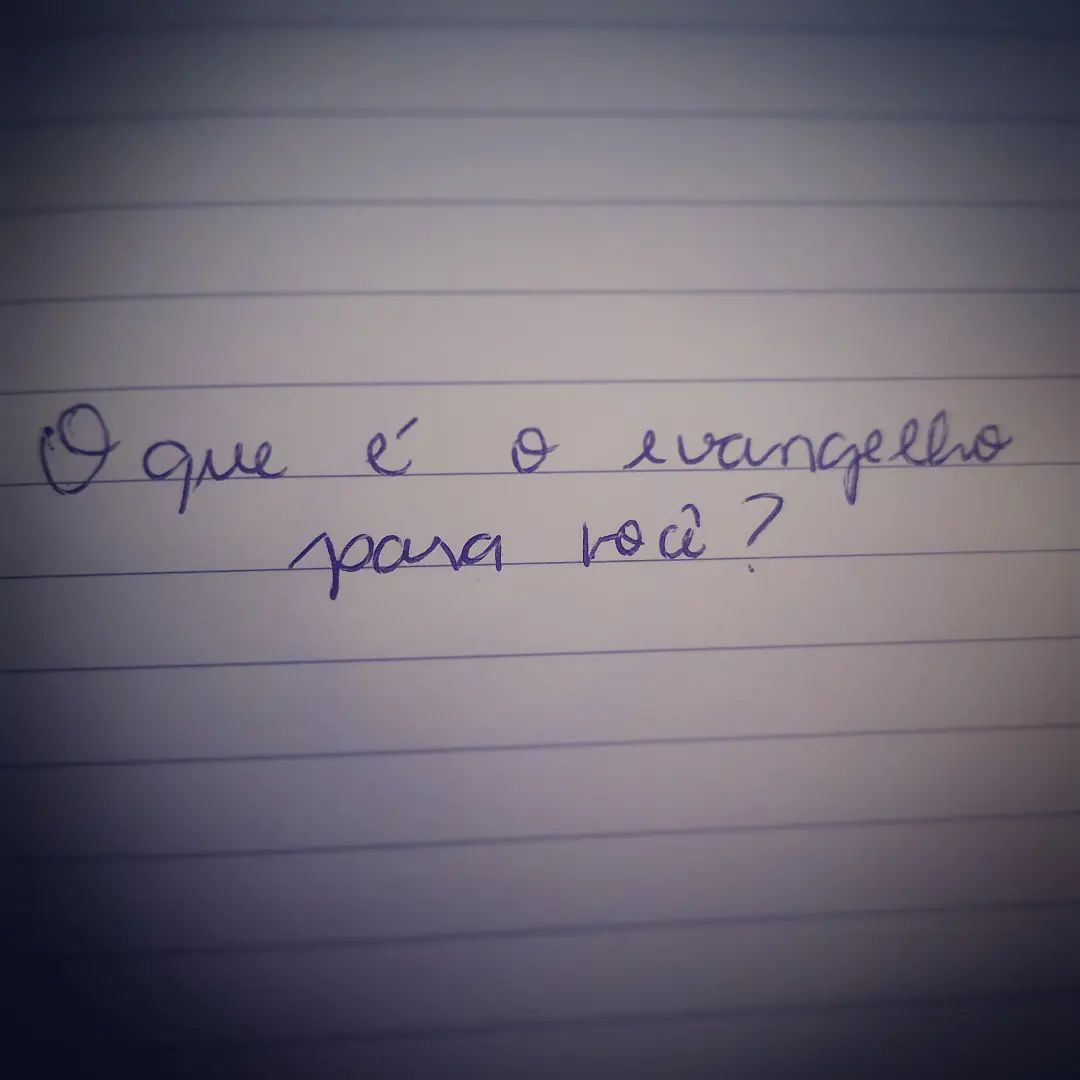 O que é o evangelho
para você?